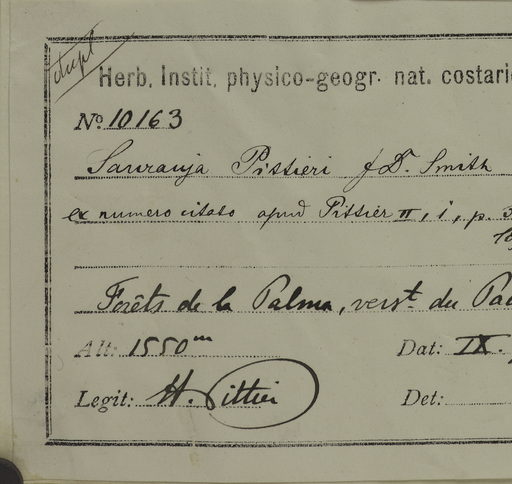 dupl
Herb. Instit. physico-geogr. nat. costari
No 10163
Saurauja Pittieri J D. Smith
ex numero citato apud Pittier II, i, p. 3
Forêts de la Palma, verst du Pac
Alt: 1550 m Dat: IX.
Legit: H. Pittier Det: